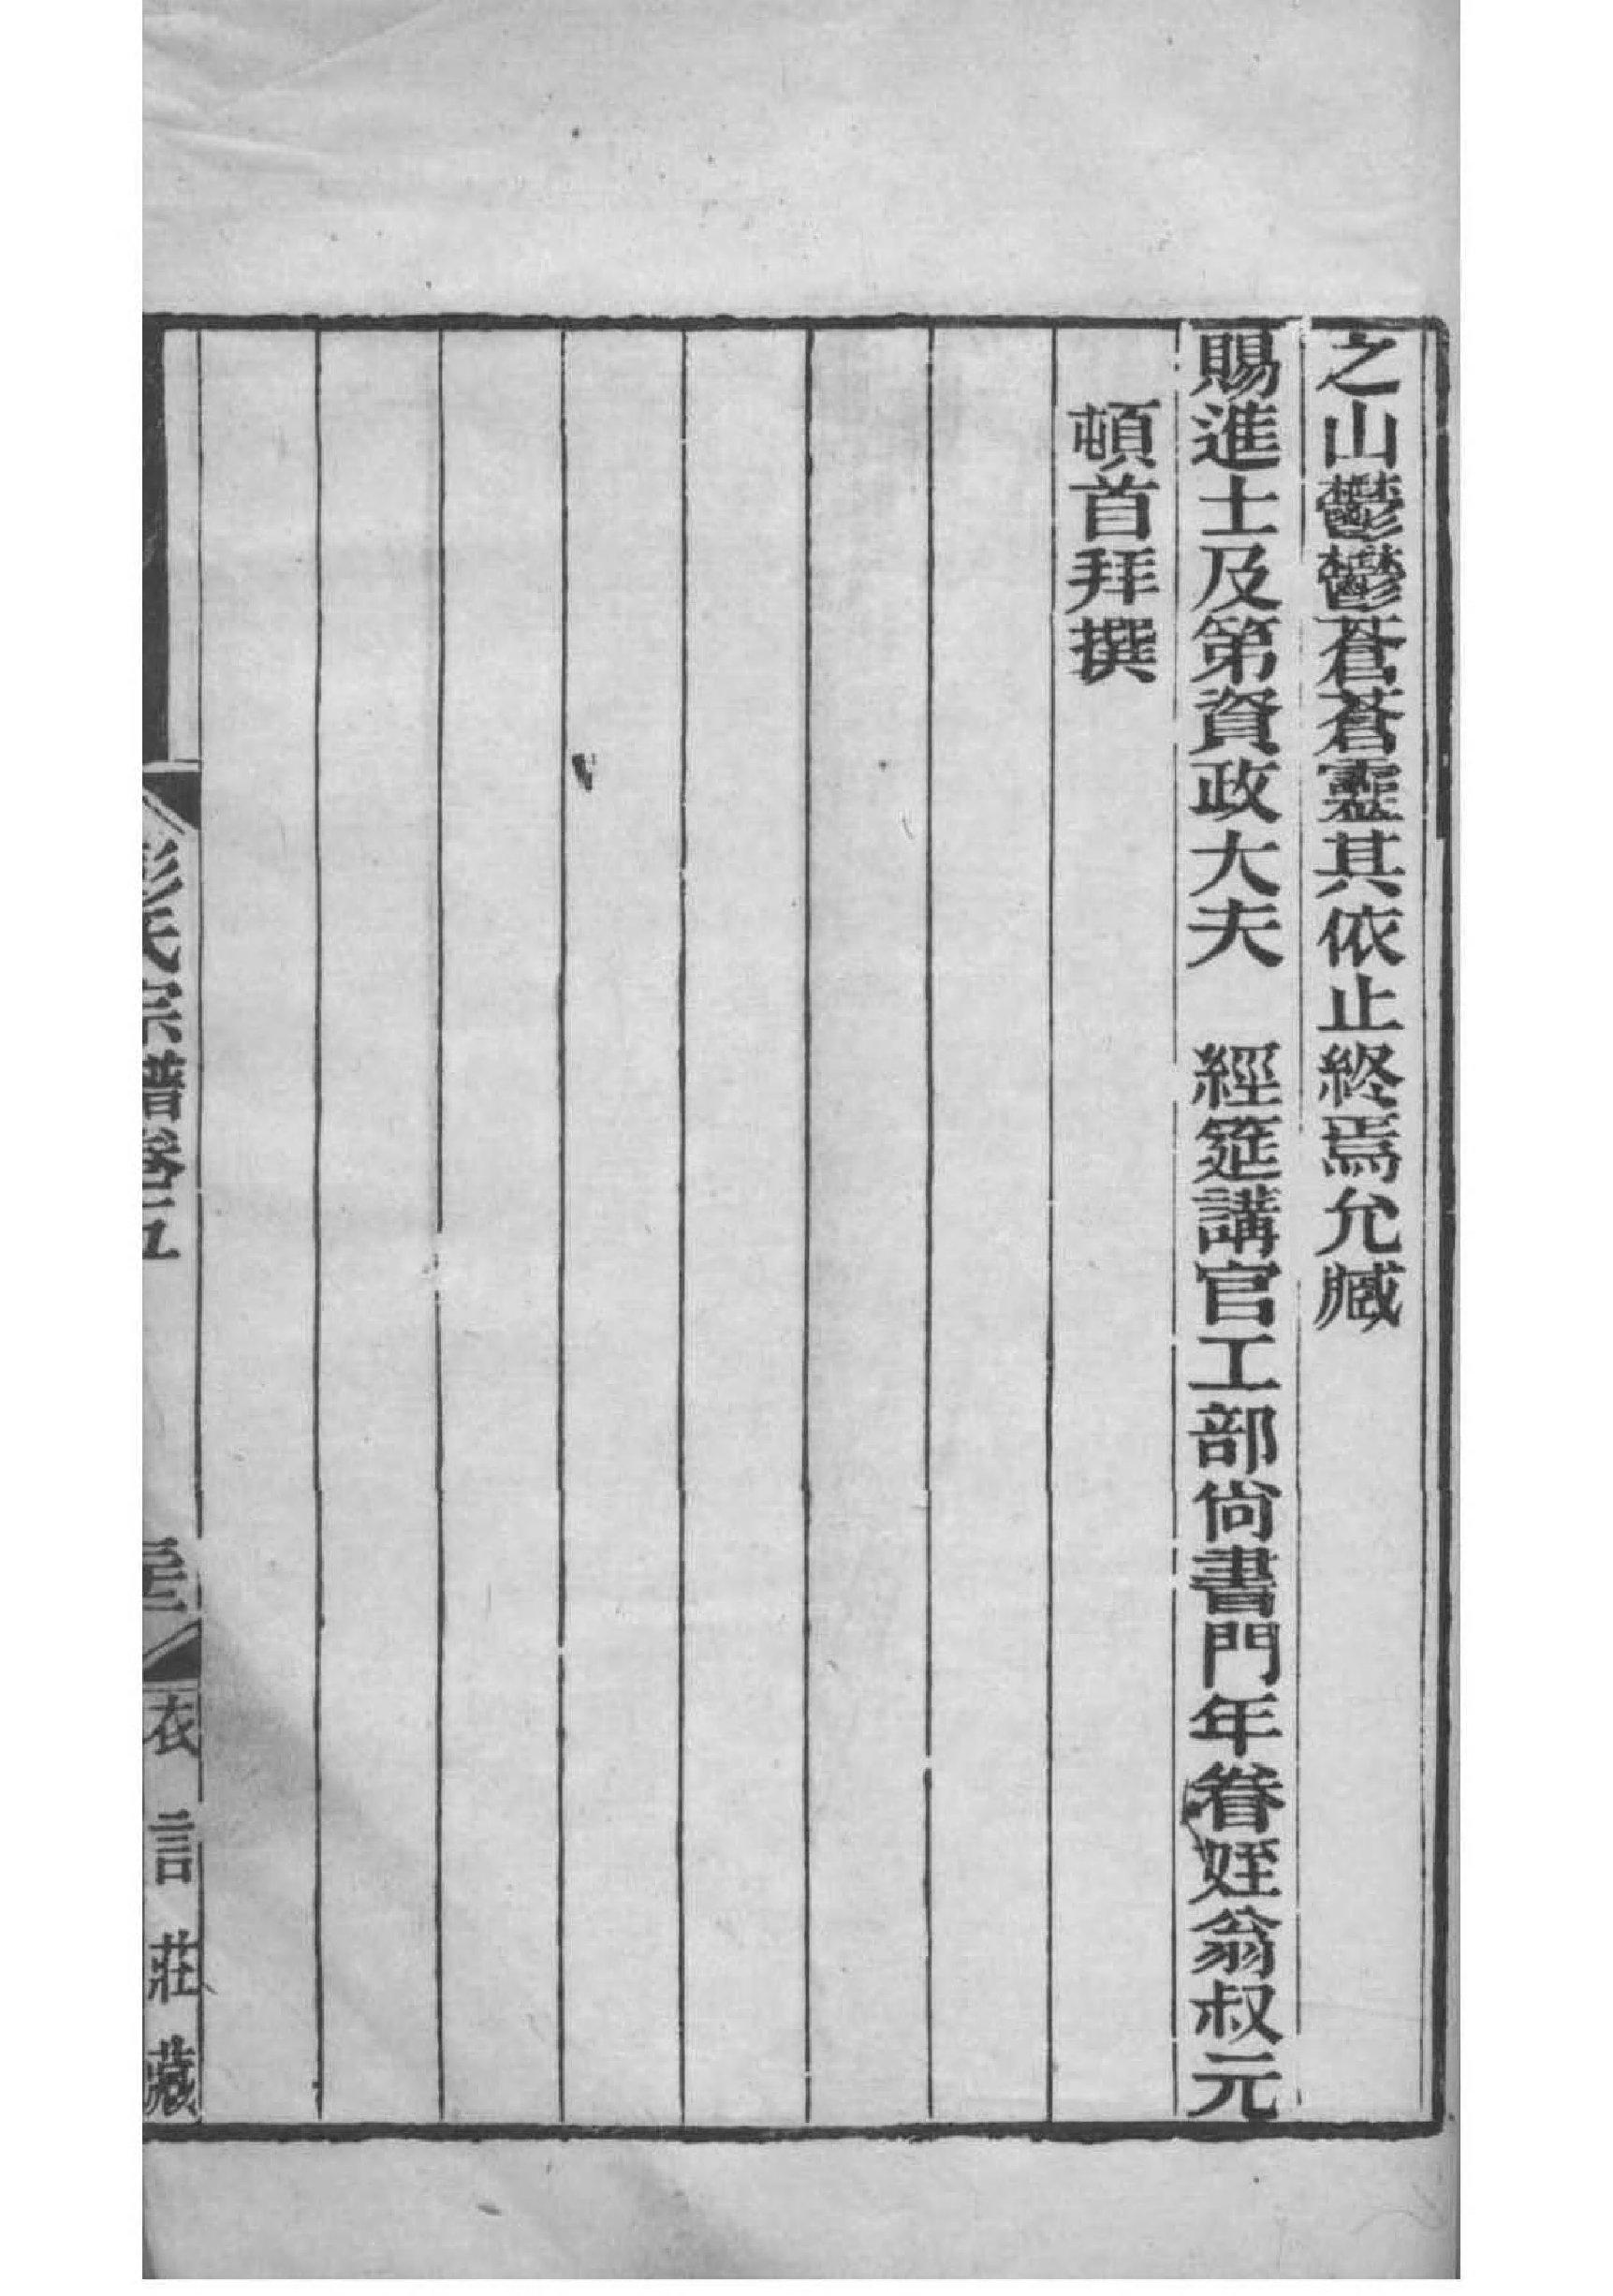 之山鬱鬱蒼蒼靈其依止終焉允臧
賜進士及第資政大夫　經筵講官工部尙書門年眷姪翁叔元
頓首拜撰
彭氏宗譜卷五
衣言莊藏